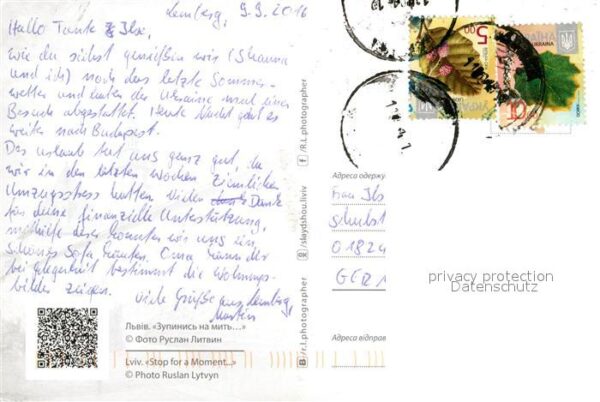 Lemberg, 9.9.2016
Hallo Tante Ilse,
wie du siehst genießen wir (Shanna
und ich) noch das letzte Sommer-
wetter und haben der Ukraine mal einen
Besuch abgestattet. Heute Nacht geht es
weiter nach Budapest.
Das Urlaub tut uns ganz gut, da
wir in den letzten Wochen ziemlichen
Umzugsstress hatten. Vielen Dank
für deine finanzielle Unterstützung,
mithilfe derer konnten wir uns ein
schönes Sofa kaufen. Oma kann dir
bei Gelegenheit bestimmt die Wohnungs-
bilder zeigen.
Viele Grüße aus Lemberg,
Martin
Львів. «Зупинись на мить...»
© Фото Руслан Литвин
Lviv. «Stop for a Moment...»
© Photo Ruslan Lytvyn
/R.L.photographer
/slaydshou.lviv
/r.l.photographer
5.00
УКРАЇНА
UKRAINE
Адреса одержу
Frau Ils
01824
GER
privacy protection
Datenschutz
Адреса відправ